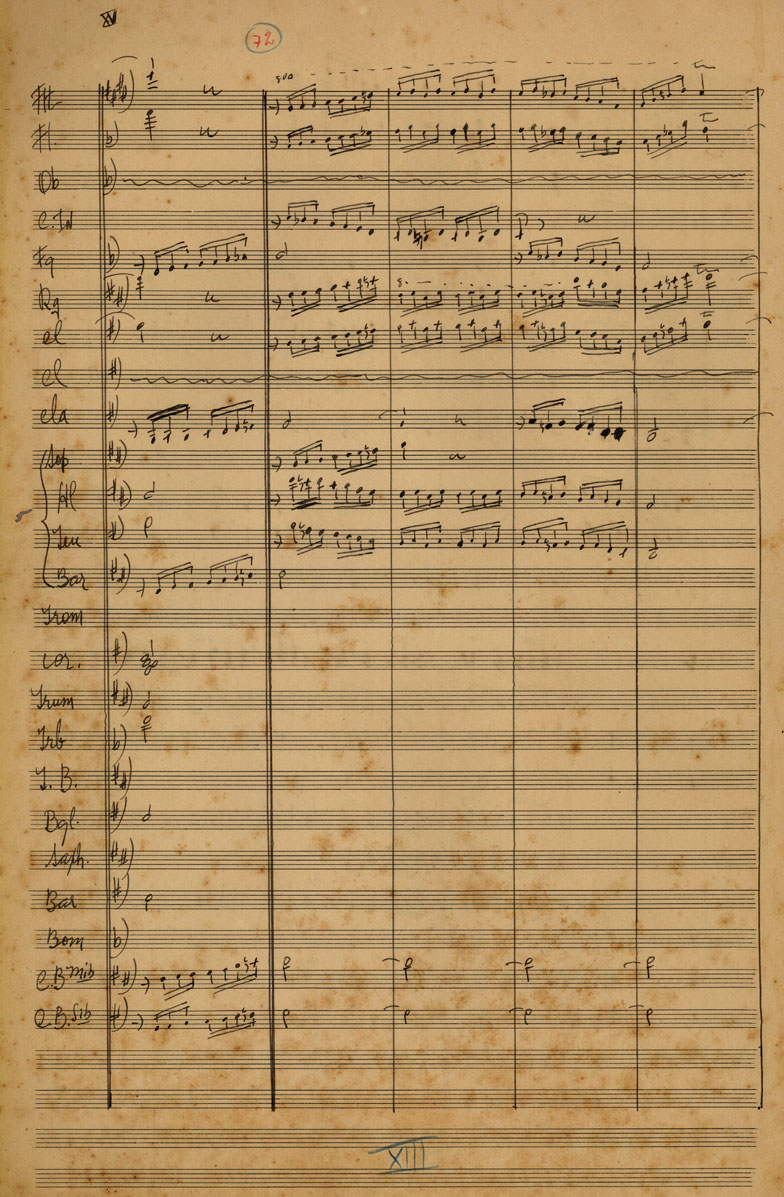 XV
72
8va
Fl.
Ob
C. In
Fg
Rq
cl
cl
cla
Sop
Al
Ten
Bar
Trom
cor.
Trum
Trb
T. B.
Bgl.
Saph.
Bar
Bom
C.B mib
C.B. Sib
XIII